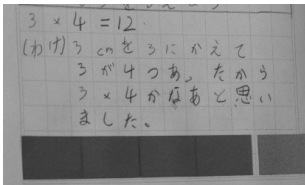 3 × 4 = 12
(わけ) 3 cmを3にかえて
3が4つあったから
3 × 4かなあと思い
ました。